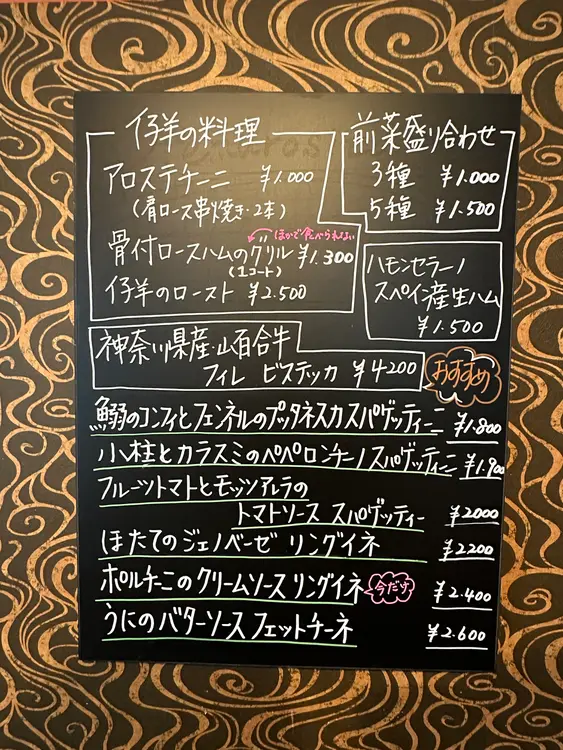 仔羊の料理
アロステチーニ ¥1.000
(肩ロース串焼き・2本)
ほかで食べられない
骨付ロースハムのグリル ¥1.300
仔羊のロースト ¥2.500
前菜盛り合わせ
3種 ¥1.000
5種 ¥1.500
ハモンセラーノ
スペイン産生ハム
¥1.500
神奈川県産・山百合牛
フィレ ビステッカ ¥4200
おすすめ
鰯のコンフィとフェンネルのプッタネスカスパゲッティーニ ¥1.800
小柱とカラスミのペペロンチーノスパゲッティーニ ¥1.900
フルーツトマトとモッツアレラの
トマトソース スパゲッティー ¥2000
ほたてのジェノベーゼ リングイネ ¥2200
ポルチーニのクリームソース リングイネ 今だけ ¥2.400
うにのバターソース フェットチーネ ¥2.600